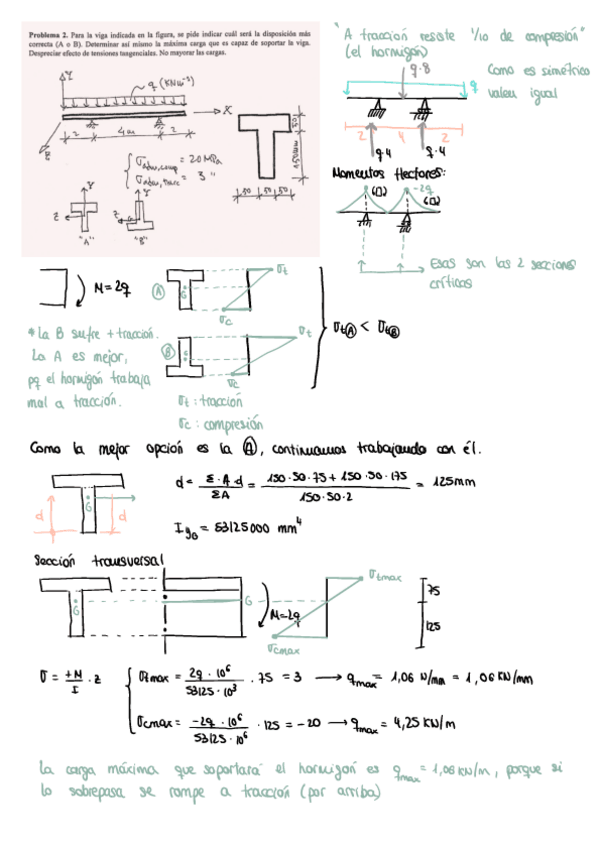 Problema 2. Para la viga indicada en la figura, se pide indicar cuál será la disposición más
correcta (A o B). Determinar así mismo la máxima carga que es capaz de soportar la viga.
Despreciar efecto de tensiones tangenciales. No mayorar las cargas.
"A tracción resiste 1/10 de compresión"
(el hormigón)
Como es simétrico
valen igual
q·8
q
2 4 2
q·4 q·4
Y
q (KN m⁻¹)
X
2 4m 2
Z
σadm,comp = 20 MPa
σadm,tracc = 3 "
50 50 50
Y Y
Z Z
"A" "B"
Momentos flectores:
-2q
Esas son las 2 secciones
críticas
M=2q
A
G
σt
σc
B
σt
σc
σtA < σtB
* La B sufre + tracción.
La A es mejor,
pq el hormigón trabaja
mal a tracción.
σt : tracción
σc : compresión
Como la mejor opción es la A, continuamos trabajando con él.
d = Σ·A d / ΣA = 150·50·75 + 150·50·175 / 150·50·2 = 125mm
d G d
IgG = 53125000 mm⁴
Sección transversal
G G
M=2q
σtmax
σcmax
75
125
σ = +M/I · z
σtmax = 2q·10⁶ / 53125·10³ · 75 = 3 → qmax = 1,06 N/mm = 1,06 KN/mm
σcmax = -2q·10⁶ / 53125·10⁶ · 125 = -20 → qmax = 4,25 KN/m
La carga máxima que soportará el hormigón es qmax = 1,06 KN/m, porque si
lo sobrepasa se rompe a tracción (por arriba)